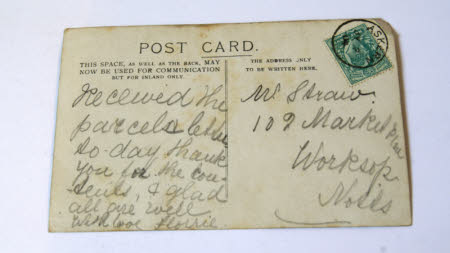 POST CARD.
THIS SPACE, AS WELL AS THE BACK, MAY
NOW BE USED FOR COMMUNICATION
BUT FOR INLAND ONLY.
THE ADDRESS ONLY
TO BE WRITTEN HERE.
Received the
parcel & letter
to-day thank
you for the con
tents, & glad
all are well
with love Florrie.
Mr Straw.
102 Market Place
Worksop
Notts